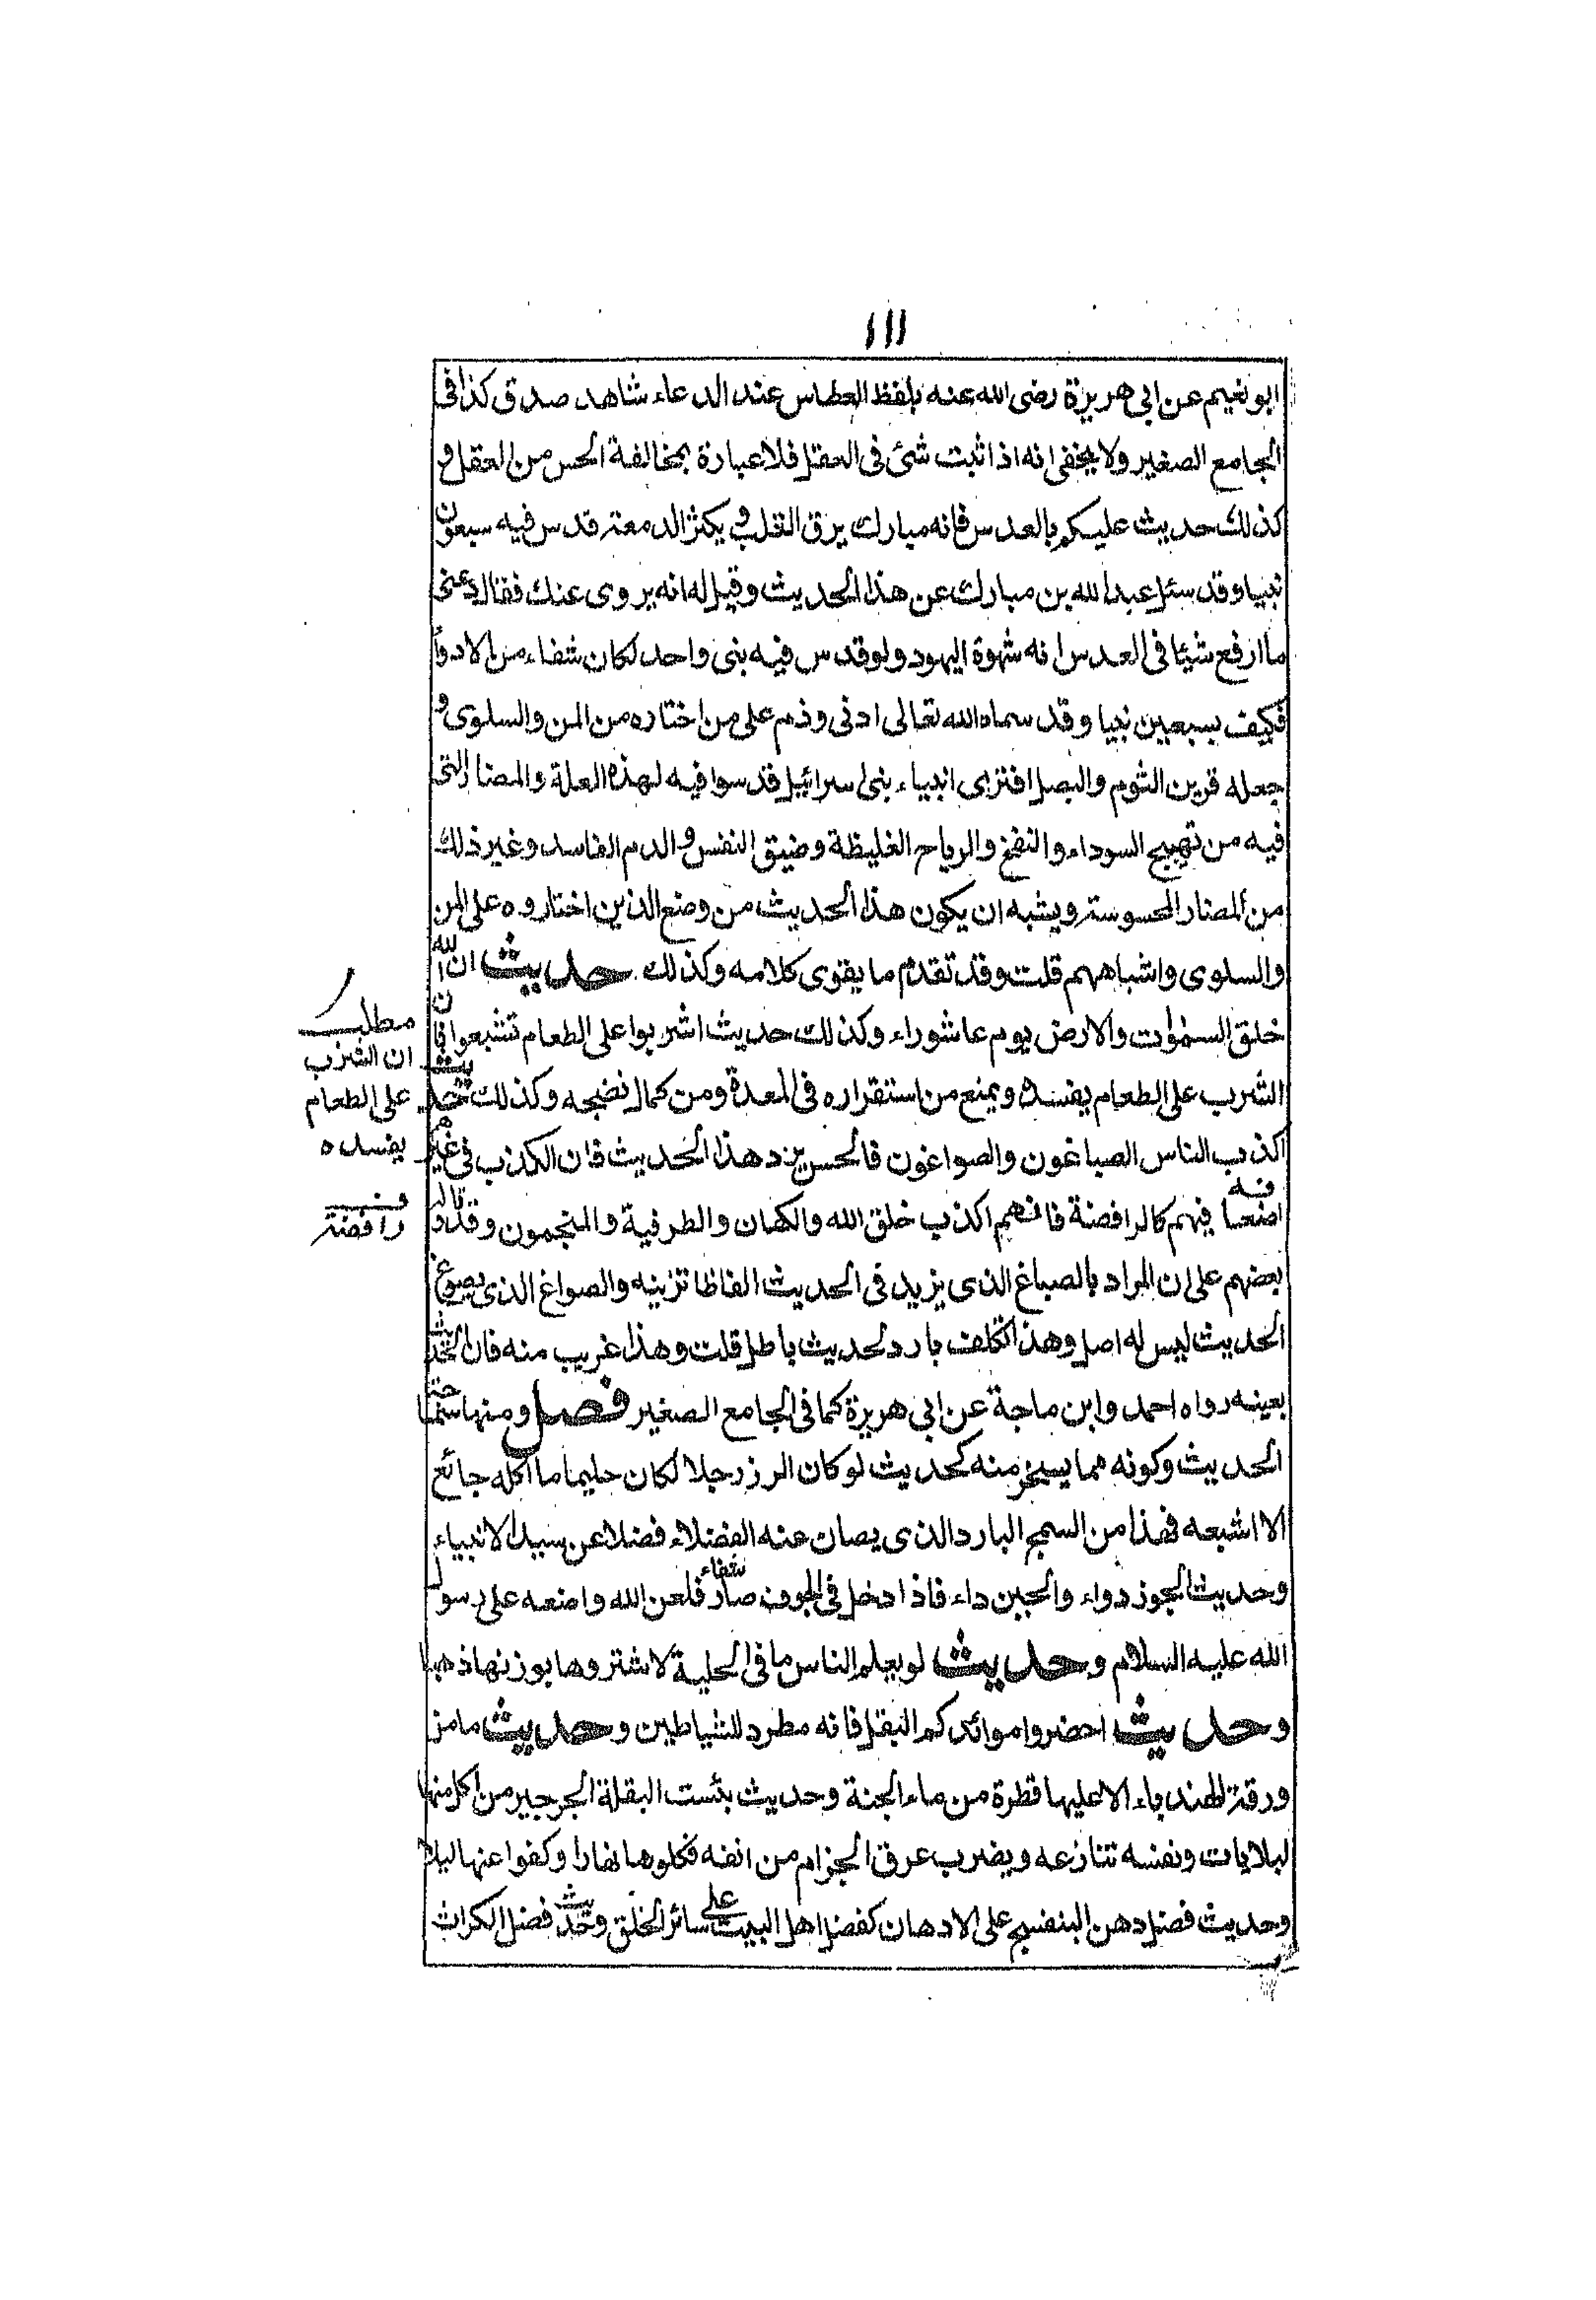 ١١١
ابو نعيم عن ابي هريرة رضى الله عنه بلفظ العطاس عند الدعاء شاهد صدق كذا فى
الجامع الصغير ولا يخفى انه اذا ثبت شئ فى العقل فلا عبارة بمخالفة الحس من العقل و
كذلك حديث عليكم بالعدس فانه مبارك يرق القلب و يكثر الدمعة قدس فيه سبعون
نبيا وقد سئل عبد الله بن مبارك عن هذا الحديث وقيل له انه يروى عنك فقال وعنى
ما ارفع شيئا فى العدس انه شهوة اليهود ولو قدس فيه نبى واحد لكان شفاء من الادواء
فكيف بسبعين نبيا وقد سماه الله تعالى ادنى وذم على من اختاره من المن والسلوى و
جعله قرين الثوم والبصل افترى انبياء بنى اسرائيل قدسوا فيه لهذه العلة والمضار التى
فيه من تهييج السوداء والنفخ والرياح الغليظة وضيق النفس والدم الفاسد وغير ذلك
من المضار المحسوسة ويشبه ان يكون هذا الحديث من وضع الذين اختاروه على المن
والسلوى واشباههم قلت وقد تقدم ما يقوى كلامه وكذلك حديث ان الله
خلق السموات والارض يوم عاشوراء وكذلك حديث اشربوا على الطعام تشبعوا فان
الشرب على الطعام يفسده ويمنع من استقراره فى المعدة ومن كمال نضجه وكذلك حديث
اكذب الناس الصباغون والصواغون فالحس يرد هذا الحديث فان الكذب فى غيرهم
اضعافه فيهم كالرافضة فانهم اكذب خلق الله والكهان والطرفية والمنجمون وقد تاول
بعضهم على ان المراد بالصباغ الذى يزيد فى الحديث الفاظا تزينه والصواغ الذى يصوغ
الحديث ليس له اصل وهذا تكلف بارد لحديث باطل قلت وهذا غريب منه فان الحديث
بعينه رواه احمد وابن ماجة عن ابي هريرة كما فى الجامع الصغير فصل ومنها سماجة
الحديث وكونه مما يسخر منه كحديث لو كان الرز رجلا لكان حليما ما اكله جائع
الا اشبعه فهذا من السمج البارد الذى يصان عنه الفضلاء فضلا عن سيد الانبياء
وحديث الجوز دواء والجبن داء فاذا دخل فى الجوف صار شفاء فلعن الله واضعه على رسول
الله عليه السلام وحديث لو يعلم الناس ما فى الحلبة لاشتروها بوزنها ذهبا
وحديث احضروا موائدكم البقل فانه مطرد للشياطين وحديث ما من
ورقة الهندباء الا عليها قطرة من ماء الجنة وحديث بئست البقلة الجرجير من اكل منها
ليلا بات ونفسه تنازعه ويضرب عرق الجزام من انفه فكلوها نهارا وكفوا عنها ليلا
وحديث فضل دهن البنفسج على الادهان كفضل اهل البيت على سائر الخلق وحديث فضل الكراث
مطلب
ان الشرب
على الطعام
يفسده
رافضة